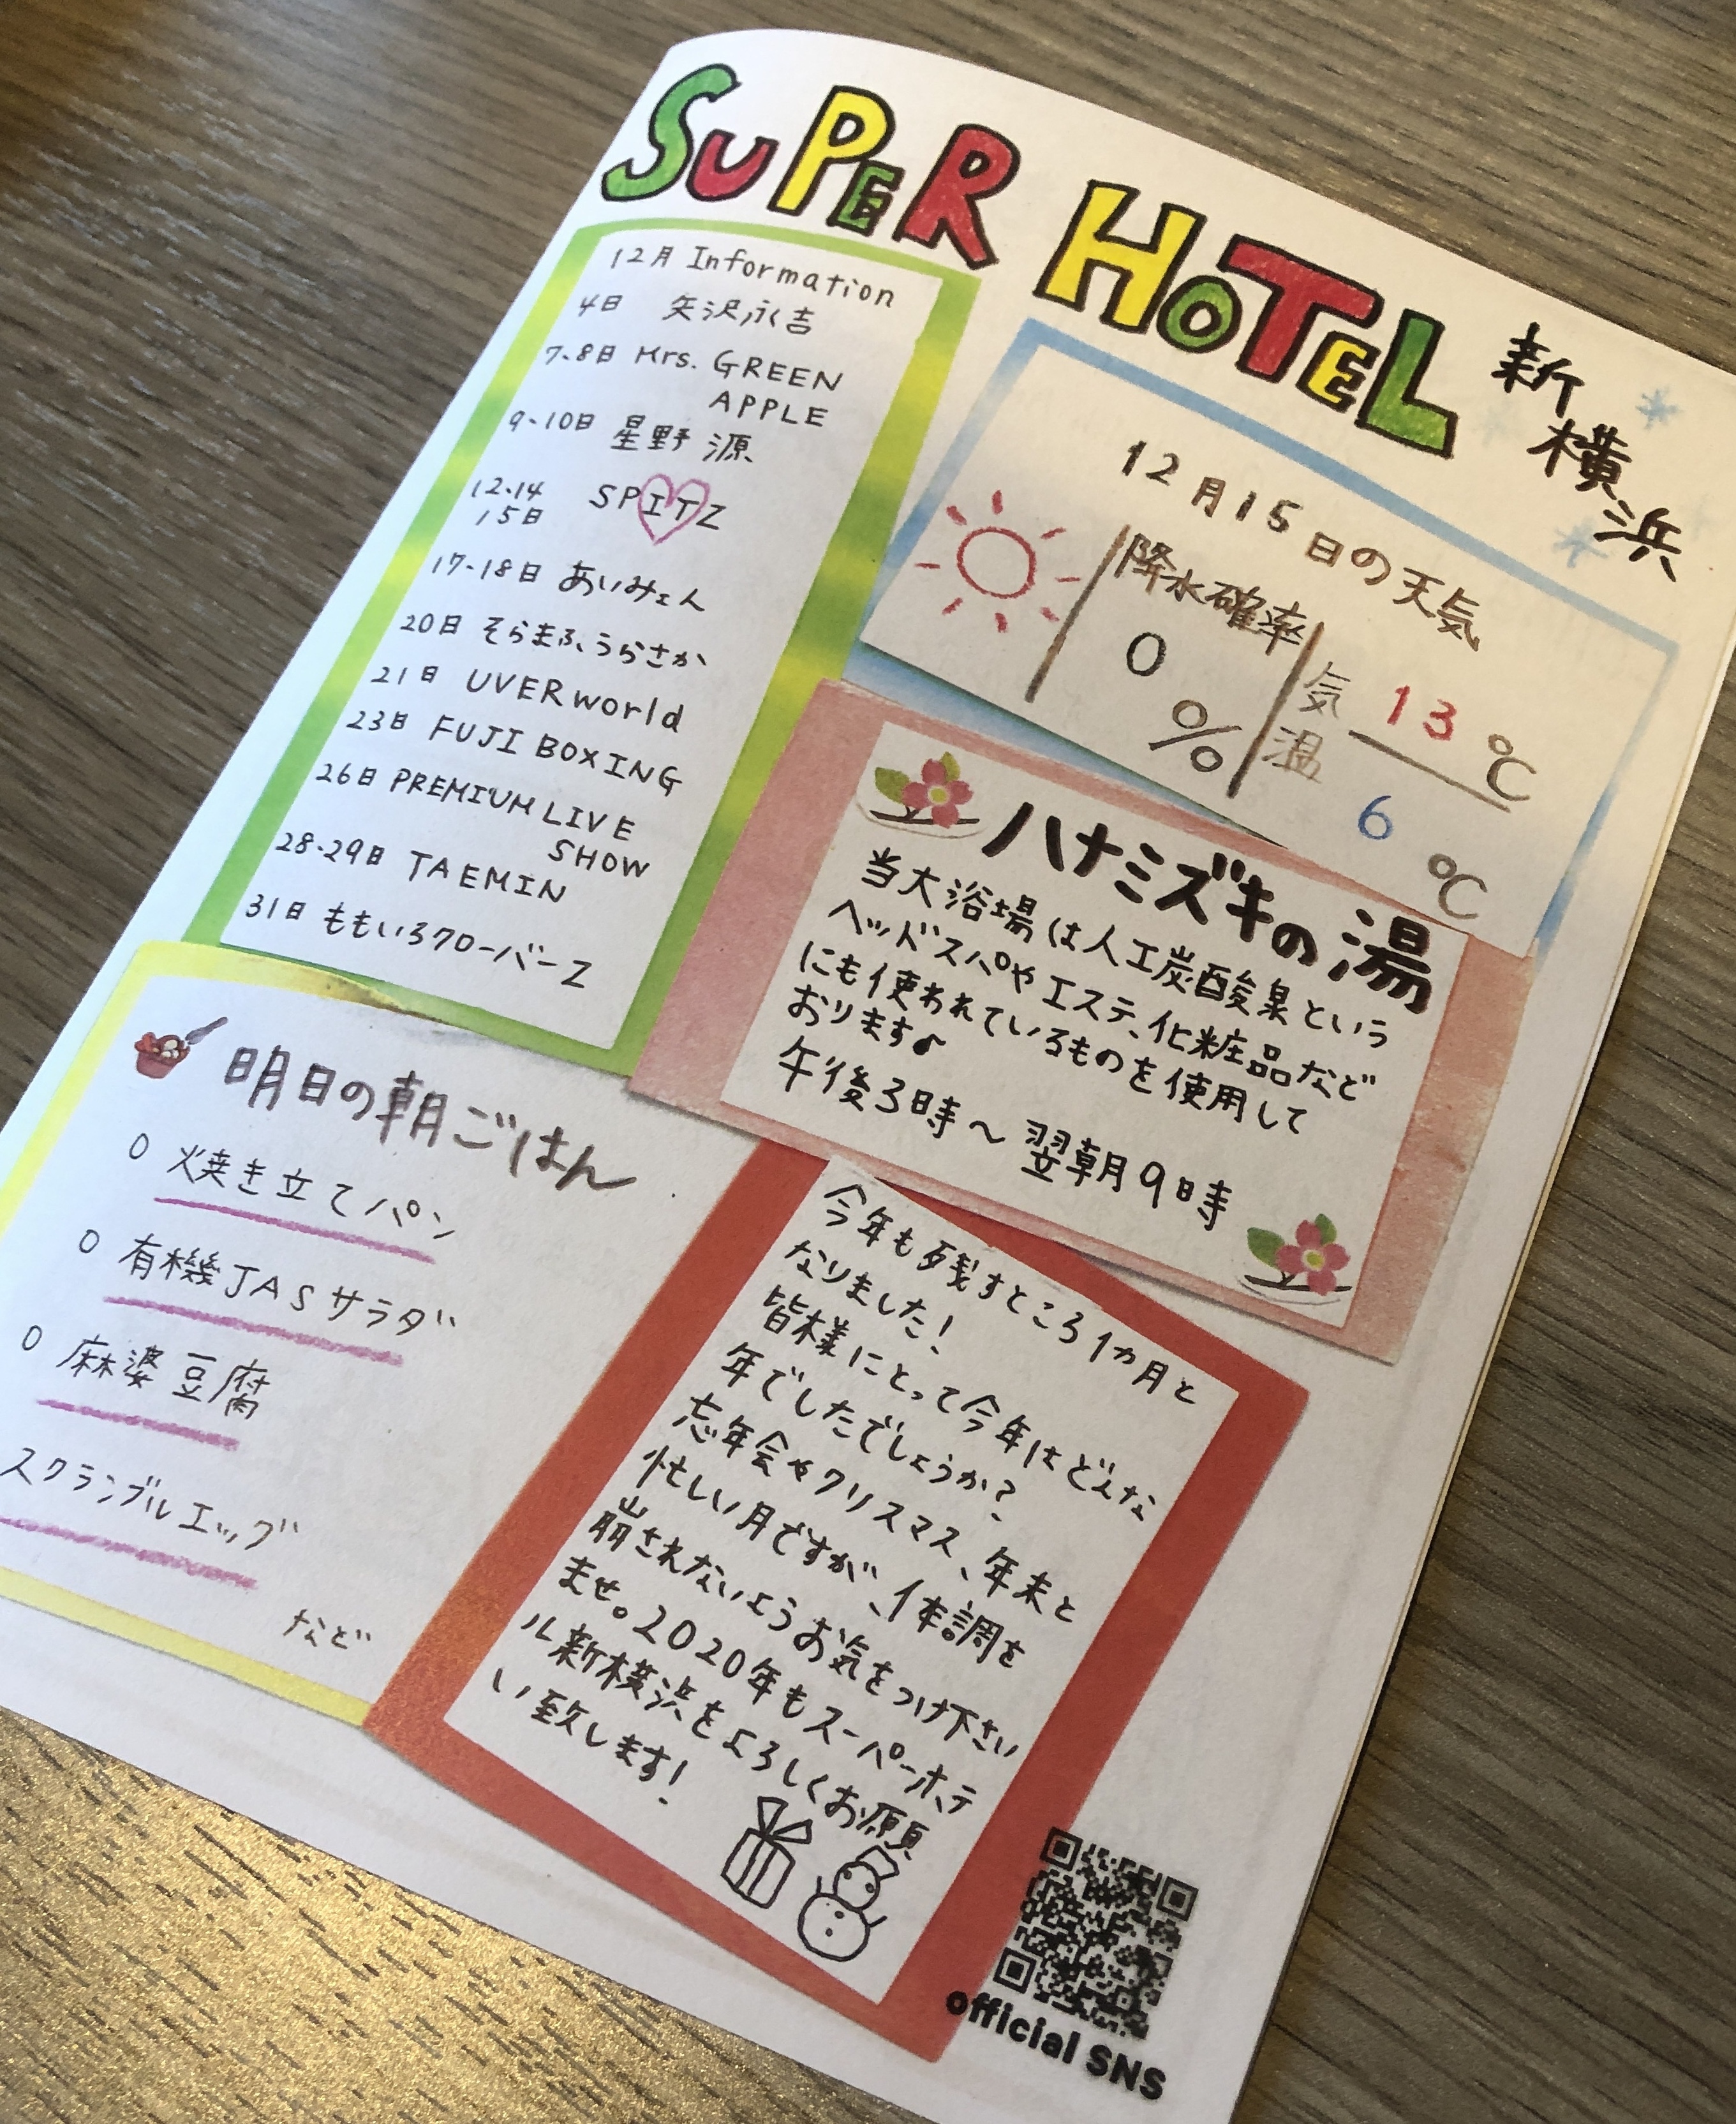 SUPER HOTEL 新横浜
12月 Information
4日 矢沢永吉
7.8日 Mrs. GREEN
APPLE
9-10日 星野 源
12.14
15日 SPITZ
17-18日 あいみょん
20日 そらまふうらさか
21日 UVERworld
23日 FUJI BOXING
26日 PREMIUM LIVE
SHOW
28-29日 TAEMIN
31日 ももいろクローバーZ
12月15日の天気
降水確率
0
%
気温
13℃
6℃
ハナミズキの湯
当大浴場は人工炭酸泉という
ヘッドスパやエステ、化粧品など
にも使われているものを使用して
おります♪
午後3時～翌朝9時
明日の朝ごはん
○ 焼き立てパン
○ 有機JASサラダ
○ 麻婆豆腐
スクランブルエッグ
など
今年も残すところ1カ月と
なりました!
皆様にとって今年はどんな
年でしたでしょうか?
忘年会やクリスマス、年末と
忙しい月ですが、体調を
崩されないようお気をつけ下さい
ませ。2020年もスーパーホテ
ル新横浜をよろしくお願
い致します!
official SNS